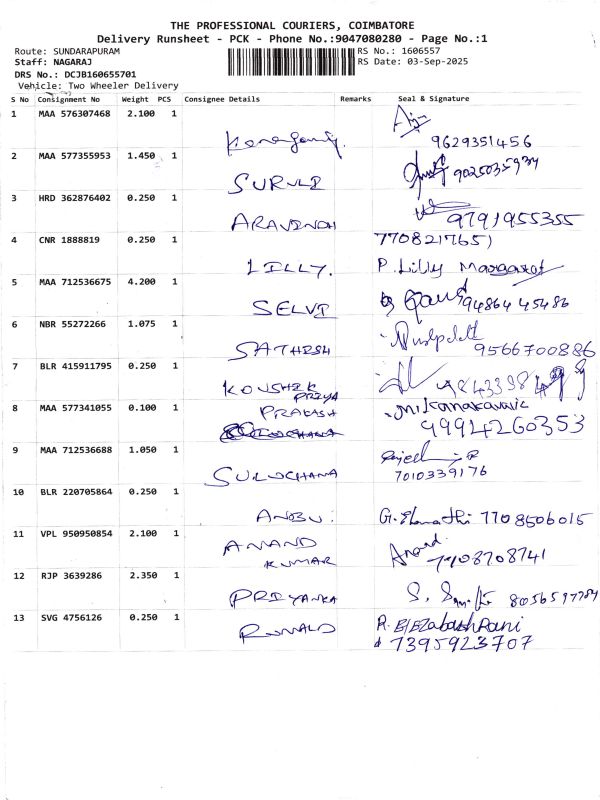 THE PROFESSIONAL COURIERS, COIMBATORE
Delivery Runsheet - PCK - Phone No.:9047080280 - Page No.:1
Route: SUNDARAPURAM
RS No.: 1606557
Staff: NAGARAJ
RS Date: 03-Sep-2025
DRS No.: DCJB160655701
Vehicle: Two Wheeler Delivery
S No Consignment No Weight PCS Consignee Details Remarks Seal & Signature
1 MAA 576307468 2.100 1
9629351456
2 MAA 577355953 1.450 1
SURULI 9025035934
3 HRD 362876402 0.250 1
ARAVINDH 9791955355
4 CNR 1888819 0.250 1 7708217651
LILLY. P. Lilly
5 MAA 712536675 4.200 1
SELVI 9486445486
6 NBR 55272266 1.075 1
SATHISH 9566700886
7 BLR 415911795 0.250 1
KOUSHIK PRIYA
8 MAA 577341055 0.100 1 PRAKASH
9994260353
9 MAA 712536688 1.050 1
SULOCHANA 7010339176
10 BLR 220705864 0.250 1
ANBU. 7708506015
11 VPL 950950854 2.100 1
ANAND KUMAR Anand
12 RJP 3639286 2.350 1
PRIYANKA
13 SVG 4756126 0.250 1
RONALD 7395923707